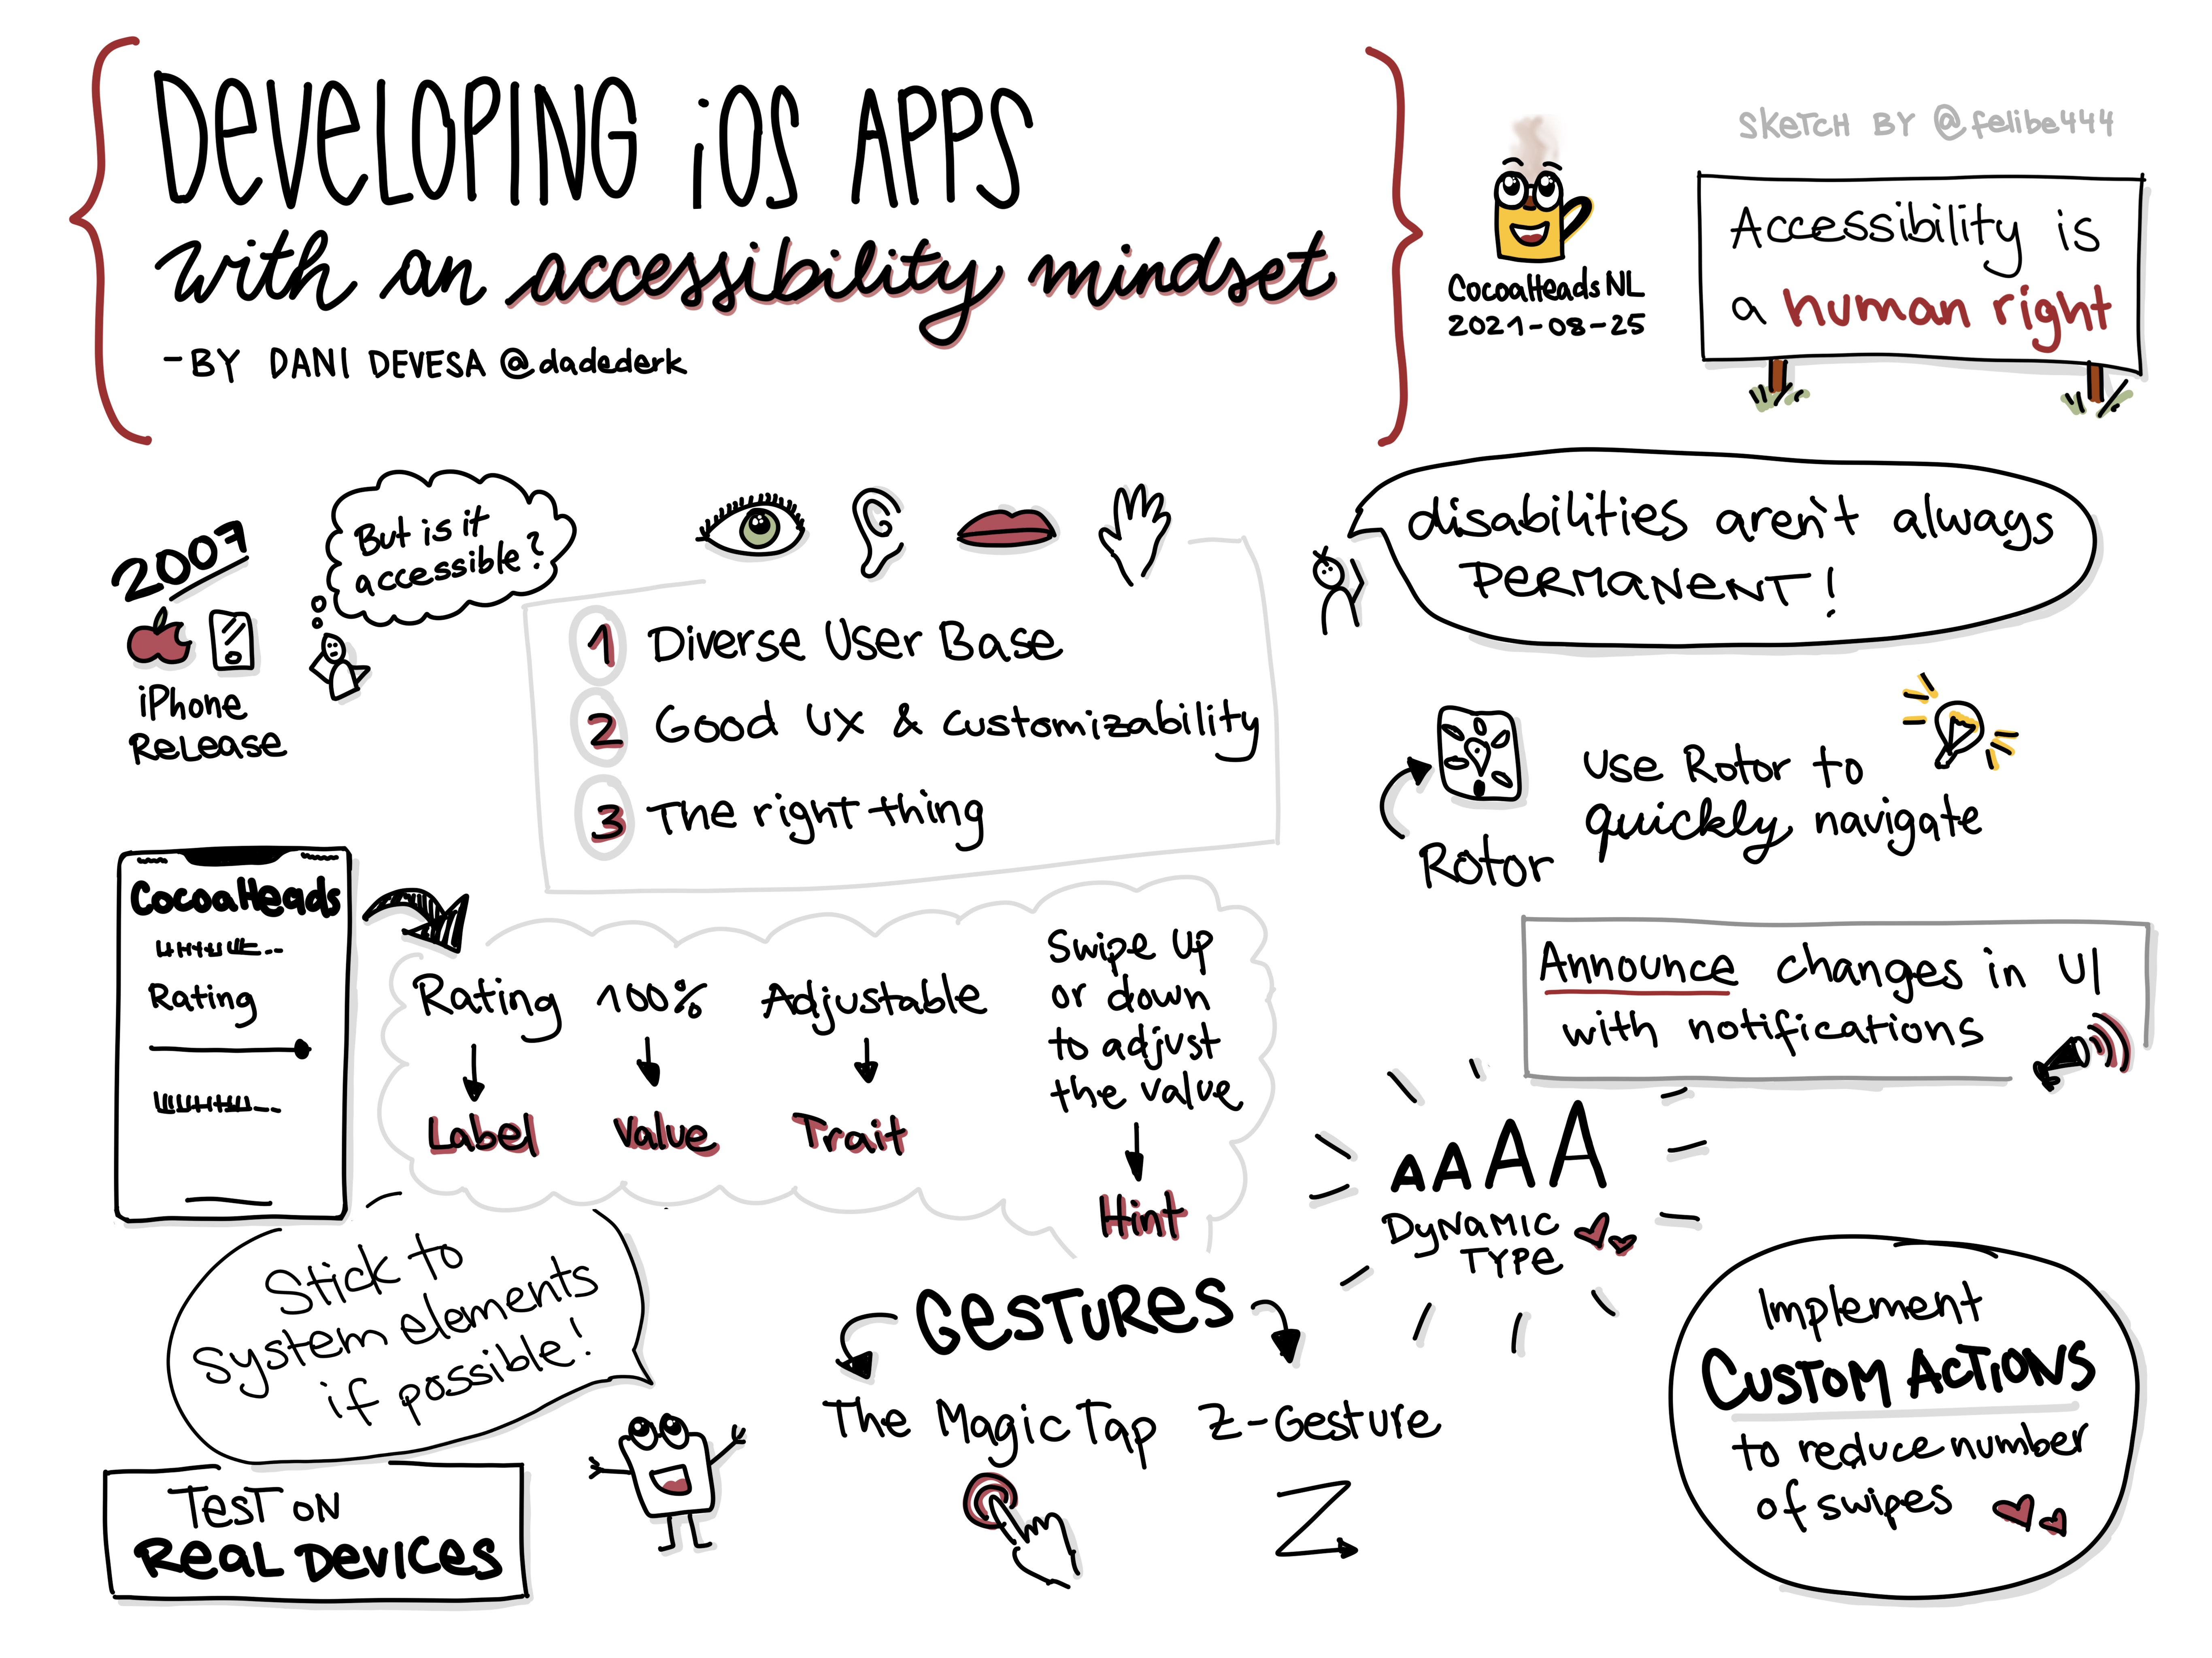 DEVELOPING iOS APPS
with an accessibility mindset
-BY DANI DEVESA @dadederk
CocoaHeadsNL
2021-08-25
SKETCH BY @felibe444
Accessibility is
a human right
2007
iPhone
Release
But is it
accessible?
1 Diverse User Base
2 Good UX & customizability
3 The right thing
disabilities aren't always
PERMANENT!
Rotor
Use Rotor to
quickly navigate
CocoaHeads
Rating
Rating 100% Adjustable
Label Value Trait
Swipe up
or down
to adjust
the value
Hint
Announce changes in UI
with notifications
AAAA
DYNAMIC
TYPE
Stick to
system elements
if possible!
TEST ON
REAL DEVICES
GESTURES
The Magic Tap Z-Gesture
Z
Implement
CUSTOM ACTIONS
to reduce number
of swipes